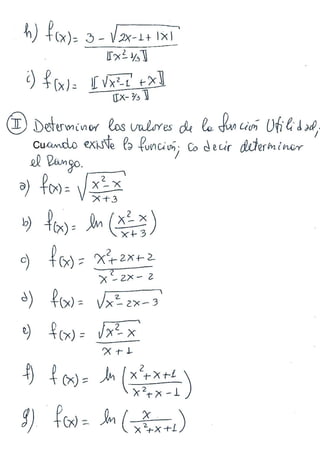 h) f(x) = 3 - √(2x-1+|x|) / ⟦x²-1/3⟧
i) f(x) = ⟦√(x²-1) + x⟧ / ⟦x-3/3⟧
II Determinar los valores de la función Utilidad,
cuando existe la función; es decir determinar
el Rango.
a) f(x) = √((x²-x)/(x+3))
b) f(x) = ln((x²-x)/(x+3))
c) f(x) = (x²+2x+2)/(x²-2x-2)
d) f(x) = √(x²-2x-3)
e) f(x) = √(x²-x)/(x+1)
f) f(x) = ln((x²+x+1)/(x²+x-1))
g) f(x) = ln(x/(x²+x+1))